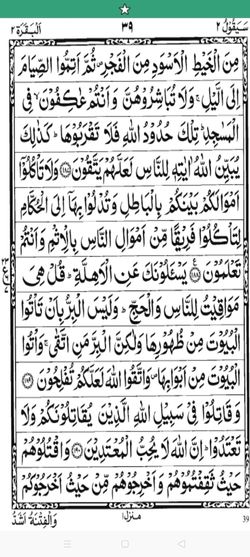 سَيَقُوْلُ ٢ ٣٩ اَلْبَقَرَة ٢
مِنَ الْخَيْطِ الْاَسْوَدِ مِنَ الْفَجْرِ ثُمَّ اَتِمُّوا الصِّيَامَ
اِلَى الَّيْلِ ۚ وَلَا تُبَاشِرُوْهُنَّ وَاَنْتُمْ عٰكِفُوْنَ ۙ فِى
الْمَسٰجِدِ ؕ تِلْكَ حُدُوْدُ اللّٰهِ فَلَا تَقْرَبُوْهَا ؕ كَذٰلِكَ
يُبَيِّنُ اللّٰهُ اٰيٰتِهٖ لِلنَّاسِ لَعَلَّهُمْ يَتَّقُوْنَ ﴿١٨٧﴾ وَلَا تَاْكُلُوْٓا
اَمْوَالَكُمْ بَيْنَكُمْ بِالْبَاطِلِ وَتُدْلُوْا بِهَآ اِلَى الْحُكَّامِ
لِتَاْكُلُوْا فَرِيْقًا مِّنْ اَمْوَالِ النَّاسِ بِالْاِثْمِ وَاَنْتُمْ
تَعْلَمُوْنَ ﴿١٨٨﴾ يَسْـَٔلُوْنَكَ عَنِ الْاَهِلَّةِ ؕ قُلْ هِىَ
مَوَاقِيْتُ لِلنَّاسِ وَالْحَجِّ ؕ وَلَيْسَ الْبِرُّ بِاَنْ تَاْتُوا
الْبُيُوْتَ مِنْ ظُهُوْرِهَا وَلٰكِنَّ الْبِرَّ مَنِ اتَّقٰى ۚ وَاْتُوا
الْبُيُوْتَ مِنْ اَبْوَابِهَا ۪ وَاتَّقُوا اللّٰهَ لَعَلَّكُمْ تُفْلِحُوْنَ ﴿١٨٩﴾
وَقَاتِلُوْا فِىْ سَبِيْلِ اللّٰهِ الَّذِيْنَ يُقَاتِلُوْنَكُمْ وَلَا
تَعْتَدُوْا ؕ اِنَّ اللّٰهَ لَا يُحِبُّ الْمُعْتَدِيْنَ ﴿١٩٠﴾ وَاقْتُلُوْهُمْ
حَيْثُ ثَقِفْتُمُوْهُمْ وَاَخْرِجُوْهُمْ مِّنْ حَيْثُ اَخْرَجُوْكُمْ
منزل ١ وَالْفِتْنَةُ اَشَدُّ
39